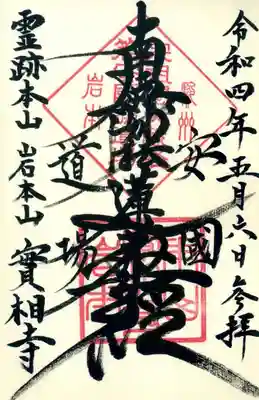 令和四年五月六日参拝
安國
南無妙法蓮華経
道場
霊跡本山 岩本山 實相寺